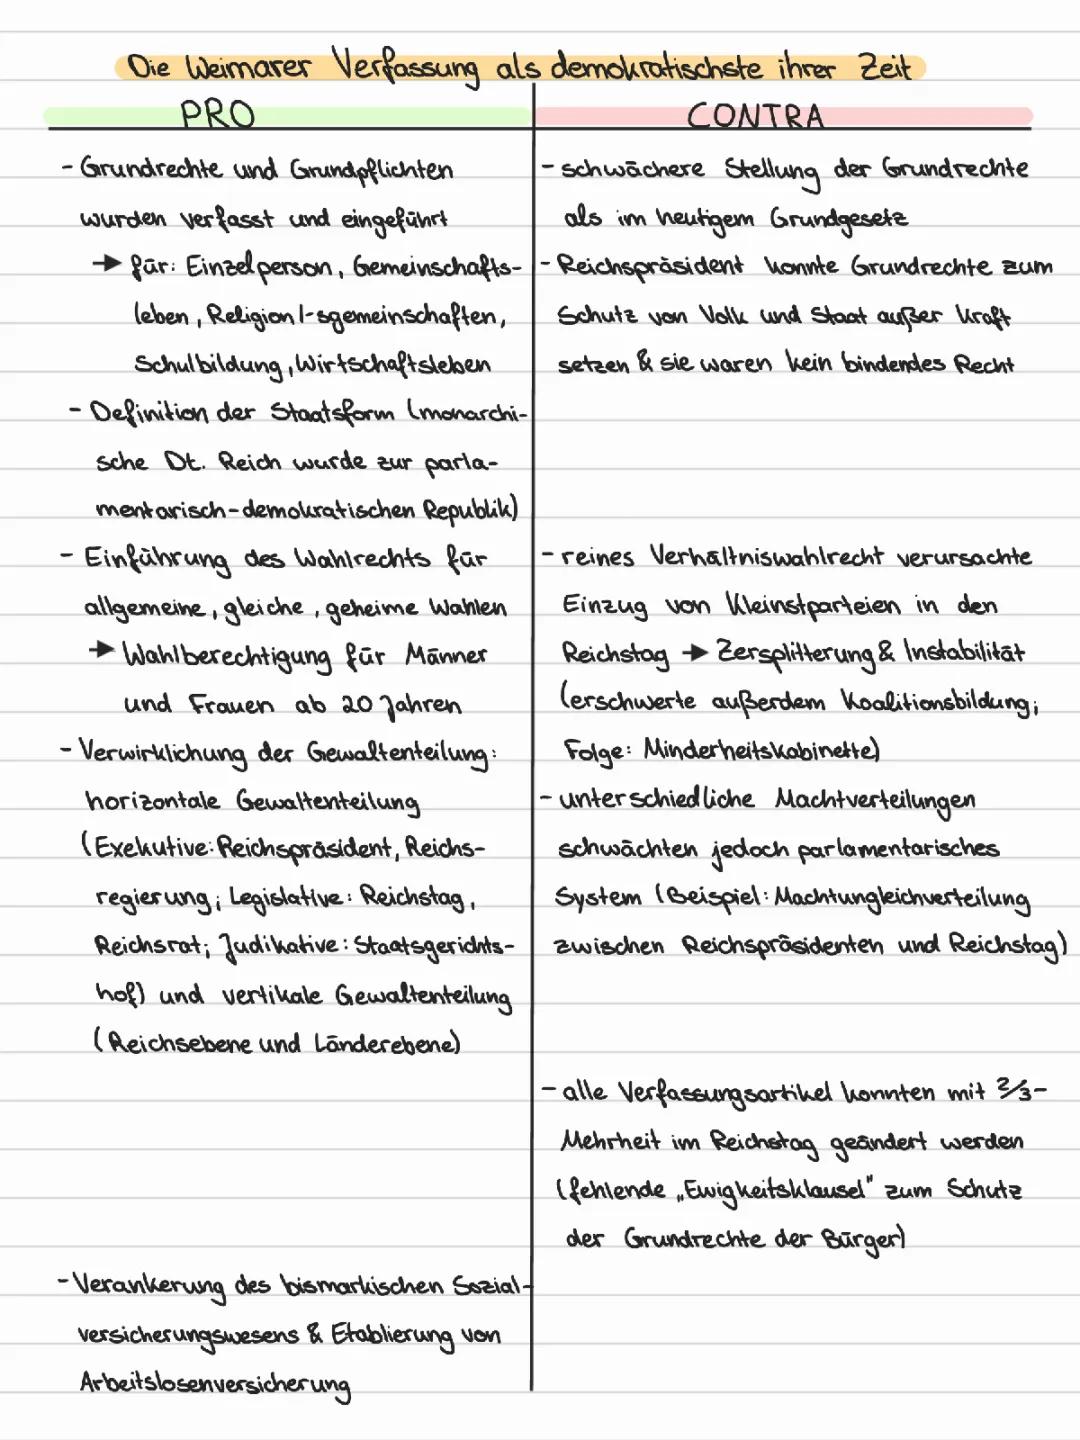 Die Weimarer Verfassung als demokratischste ihrer Zeit
PRO
- Grundrechte und Grundpflichten
wurden verfasst und eingeführt
→ für: Einzelperson, Gemeinschafts-
leben, Religion/-sgemeinschaften,
Schulbildung, Wirtschaftsleben
- Definition der Staatsform (monarchi-
sche Dt. Reich wurde zur parla-
mentarisch-demokratischen Republik)
- Einführung des Wahlrechts für
allgemeine, gleiche, geheime Wahlen
→ Wahlberechtigung für Männer
und Frauen ab 20 Jahren
- Verwirklichung der Gewaltenteilung:
horizontale Gewaltenteilung
(Exekutive: Reichspräsident, Reichs-
regierung; Legislative: Reichstag,
Reichsrat; Judikative: Staatsgerichts-
hof) und vertikale Gewaltenteilung
(Reichsebene und Länderebene)
- Verankerung des bismarkischen Sozial-
versicherungswesens & Etablierung von
Arbeitslosenversicherung
CONTRA
- schwächere Stellung der Grundrechte
als im heutigem Grundgesetz
- Reichspräsident konnte Grundrechte zum
Schutz von Volk und Staat außer Kraft
setzen & sie waren kein bindendes Recht
- reines Verhältniswahlrecht verursachte
Einzug von Kleinstparteien in den
Reichstag → Zersplitterung & Instabilität
(erschwerte außerdem Koalitionsbildung;
Folge: Minderheitskabinette)
- unterschiedliche Machtverteilungen
schwächten jedoch parlamentarisches
System (Beispiel: Machtungleichverteilung
zwischen Reichspräsidenten und Reichstag)
- alle Verfassungsartikel konnten mit 2/3-
Mehrheit im Reichstag geändert werden
(fehlende „Ewigkeitsklausel" zum Schutz
der Grundrechte der Bürger)